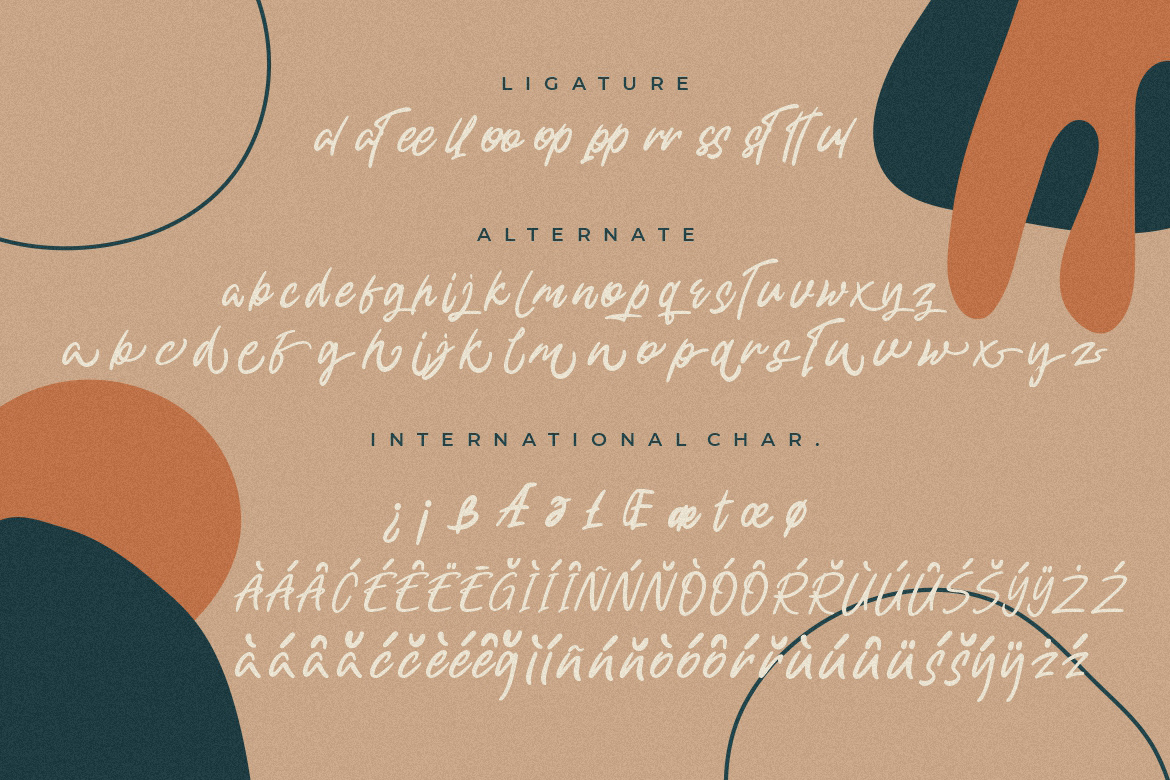 LIGATURE
al at ee ll oo op pp rr ss st tt ul
ALTERNATE
abcdefghijklmnopqrstuvwxyz
abcdefghijklmnopqrstuvwxyz
INTERNATIONAL CHAR.
¿ ¡ Æ Ł Œ æ t œ ø
ÀÁÂĆÉÊËĒĞÌÍÎÑŃŇÒÓÔŔŘÙÚÛŚŠÝŸŻŹ
àáâăćčèéêğìíñńňòóôŕřùúûüśšýÿżź